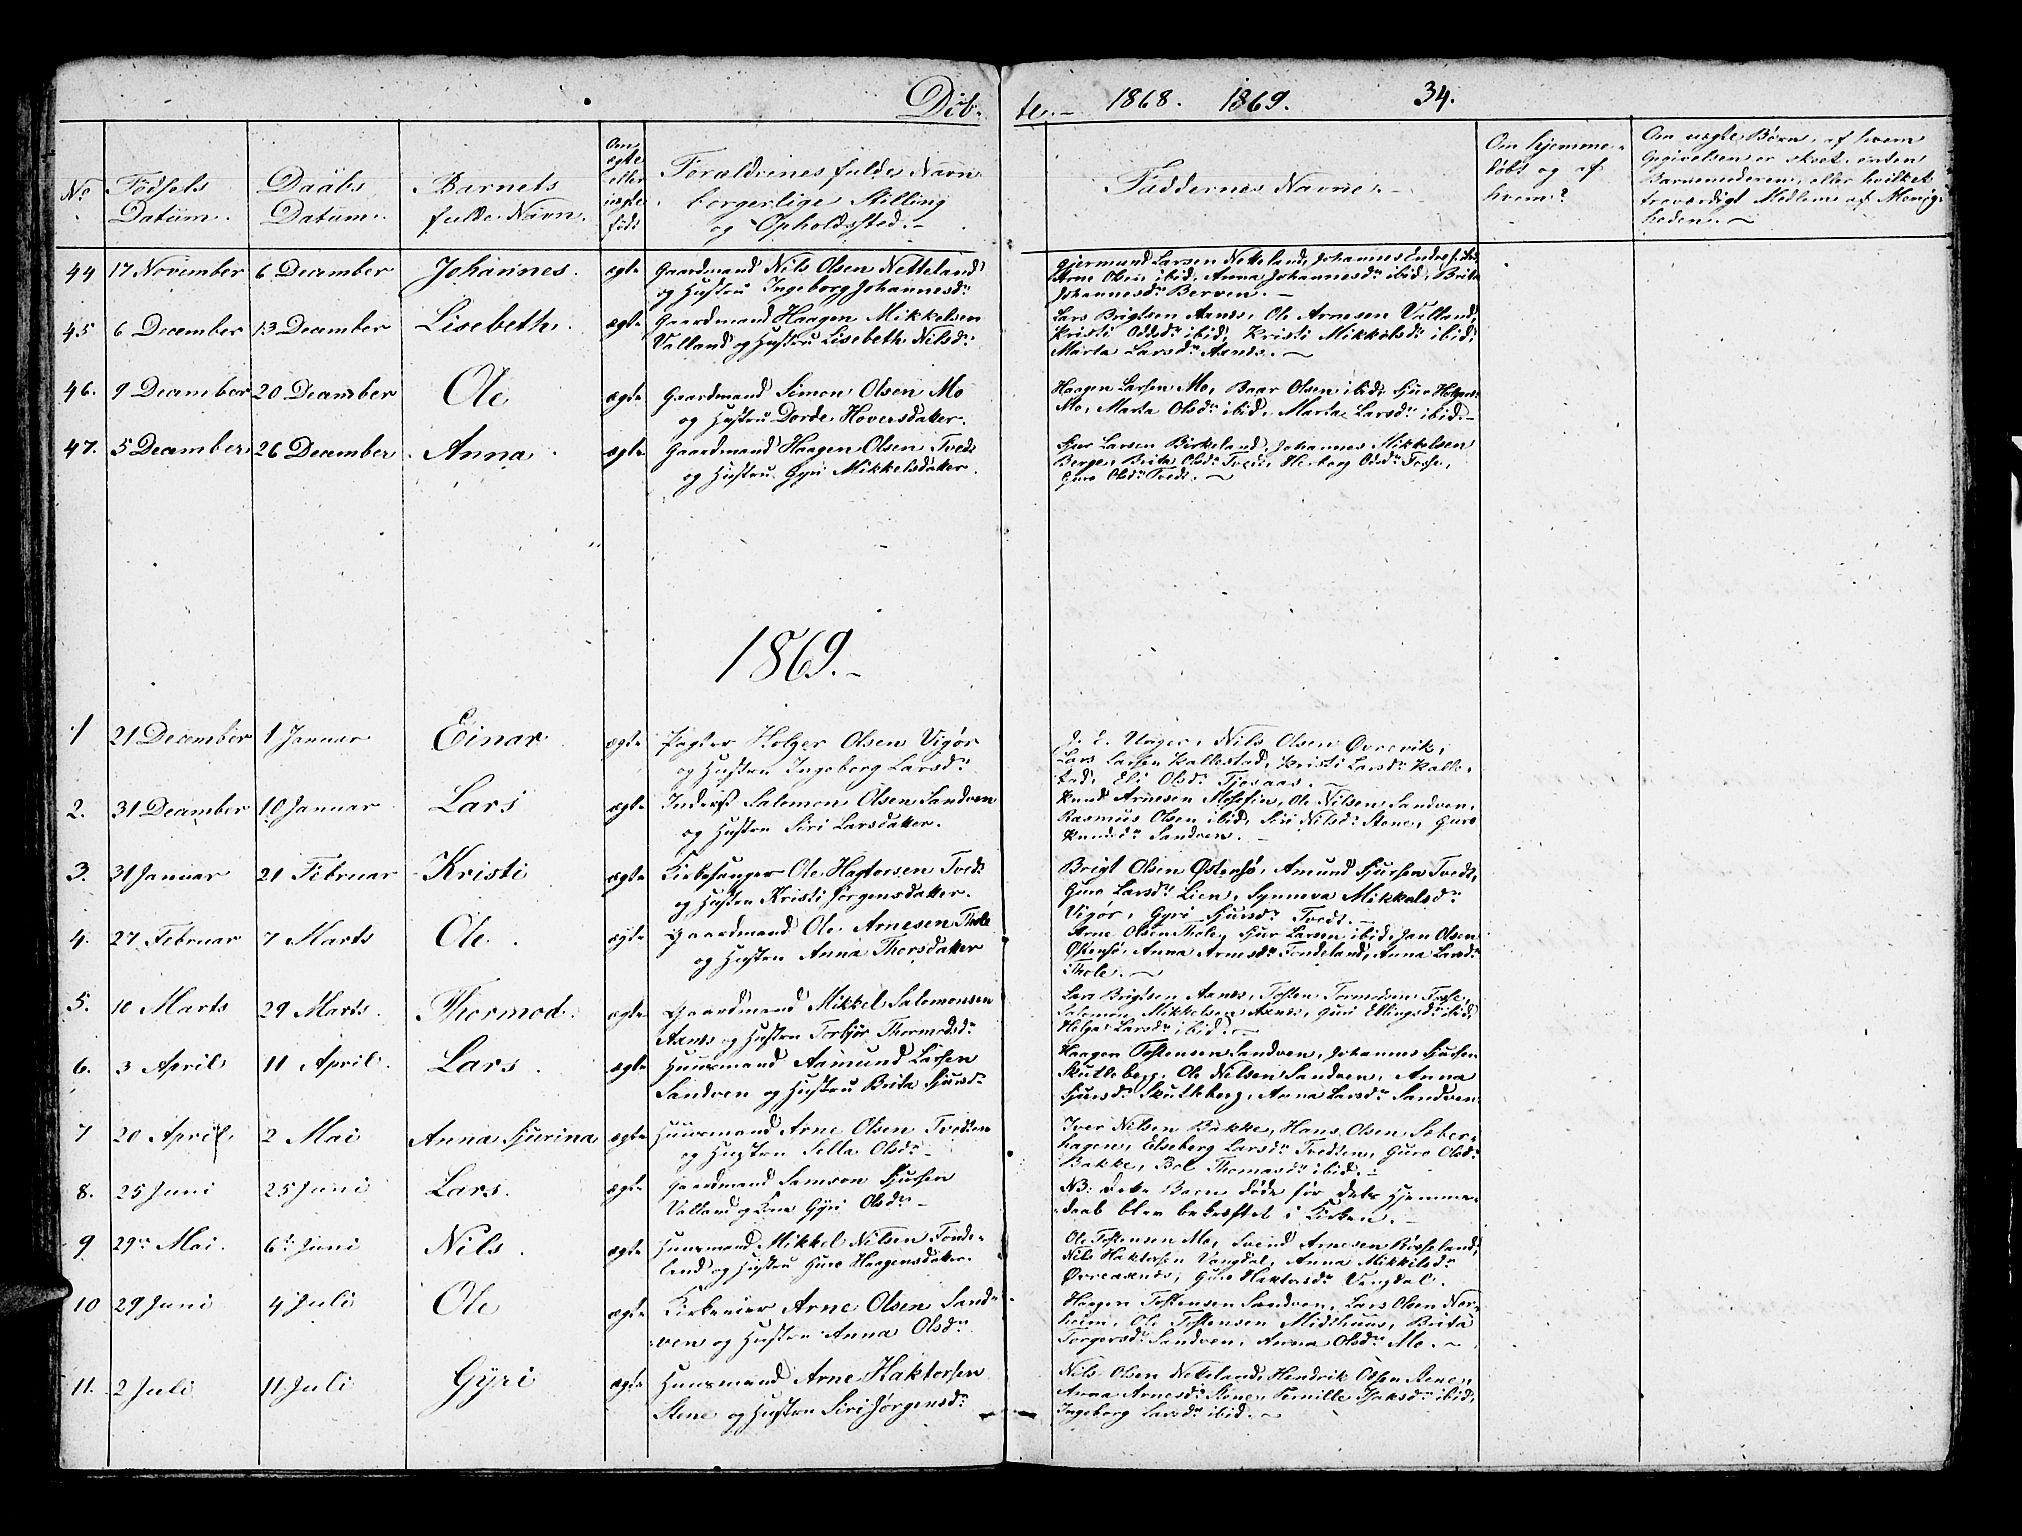 Döb- te.- 1868. 1869. 34.
No. Fødsels Datum. Daabs Datum. Barnets fulde Navn. Om ægte eller uægte født Forældrenes fulde Navn, borgerlige Stilling og Opholdssted.- Faddernes Navne.- Om hjemmedøbt og af hvem? Om uægte Børn, af hvem Opgivelsen er skeet, enten Barnemoderen, eller hvilket troværdigt Medlem af Menigheden.-
44 17 November 6 December Johannes. ægte Gaardmand Nils Olsen Netteland
og Hustru Ingeborg Johannesdr
Gjermund Larsen Neteland, Johannes
Arne Olsen ibid, Anna Johannesdr ibid, Brita
Johannesdr Berven.-
45 6 December 13 December Lisebeth. ægte Gaardmand Haagen Mikkelsen
Valland og Hustru Lisebeth Nilsdr
Lars Brigtsen Axnes, Ole Arnesen Valland,
Kristi Oddsdr ibid, Kristi Mikkelsdr ibid,
Marta Larsdr Axnes.-
46. 9 December 20 December Ole ægte Gaardmand Simon Olsen Mo
og Hustru Dorde Hoversdatter.
Haagen Larsen Mo, Baar Olsen ibid,
Mo, Marta Olsdr ibid, Marta Larsdr ibid.-
47. 5 December 26 December Anna ægte Gaardmand Haagen Olsen Tvedt
og Hustru Gyri Mikkelsdatter.
Sjur Larsen Birkeland, Johannes Mikkelsen
Berge, Brita Olsdr Tvedt, Herborg Oddsdr Tosse,
Guro Olsdr Tvedt.-
1869.-
1 21 December 1 Januar Einar ægte Pagter Holger Olsen Vigør
og Hustru Ingeborg Larsdr
Unger, Nils Olsen Øvrevik,
Lars Larsen Kallestad, Kristi Larsdr Kalle-
stad, Eli Olsdr Tjosaas.
2. 31 December 10 Januar Lars ægte Inderst Salemon Olsen Sandven
og Hustru Siri Larsdatter.
Knud Arnesen Mosefin, Ole Nilsen Sandven,
Rasmus Olsen ibid, Siri Nilsdr Stene, Guro
Knudsdr Sandven.-
3. 31 Januar 21 Februar Kristi ægte Kirkesanger Ole Hagtorsen Tvedt
og Hustru Kristi Jørgensdatter.
Brigt Olsen Østensø, Amund Sjursen Tvedt,
Guro Larsdr Lien, Synneva Mikkelsdr
Vigør, Gyri Sjursdr Tvedt.
4. 27 Februar 7 Marts Ole. ægte Gaardmand Ole Arnesen Thole
og Hustru Anna Thorsdatter
Arne Olsen Thole, Sjur Larsen ibid, Jan Olsen
Østensø, Anna Arnesdr Tondeland, Anna Larsdr
Thole.-
5. 10 Marts 29 Marts. Thormod. ægte Gaardmand Mikkel Salemonsen
Axnes og Hustru Torbjør Thormodsdr
Lars Brigtsen Axnes, Tosten Tormodsen Tosse,
Salemon Mikkelsen Axnes, Guri Ellingsdr ibid,
Helga Larsdr ibid.-
6. 3 April 11 April. Lars. ægte Huusmand Aamund Larsen
Sandven og Hustru Brita Sjursdr
Haagen Tostensen Sandven, Johannes Sjursen
Skutleberg, Ole Nilsen Sandven, Anna
Sjursdr Skutleberg, Anna Larsdr Sandven.
7 20 April. 2 Mai Anna Sjurina ægte Huusmand Arne Olsen Tvedten
og Hustru Sella Olsdr-
Iver Nilsen Bakke, Hans Olsen Sober-
hagen, Elseberg Larsdr Tvedten, Guro Olsdr
Bakke, Bol Thomasdr ibid.-
8. 25 Juni 25 Juni Lars. ægte Gaardmand Samson Sjursen
Valland og Kone Gyri Olsdr-
NB: Dette Barn døde før dets Hjemme-
daab blev bekræftet i Kirken.-
9 29de Mai. 6te Juni Nils. ægte Huusmand Mikkel Nilsen Tonde-
land og Hustru Guro Haagensdatter.
Ole Tostensen Mo, Svend Arnesen Røsseland,
Nils Haktorsen Vangdal, Anna Mikkelsdr
Øvreaxnes, Guro Haktorsdr Vangdal.
10 29 Juni 4 Juli Ole ægte Kirkeeier Arne Olsen Sand-
ven og Hustru Anna Olsdr
Haagen Tostensen Sandven, Lars Olsen Nor-
heim, Ole Tostensen Midthuus, Brita
Torgersdr Sandven, Anna Olsdr Mo.-
11. 2 Juli 11 Juli Gyri ægte Huusmand Arne Haktorsen
Stene og Hustru Siri Jørgensdr
Nils Olsen Neteland, Hendrik Olsen Stene,
Anna Arnesdr Stene, Pernille Isaksdr ibid,
Ingeborg Larsdr ibid.-